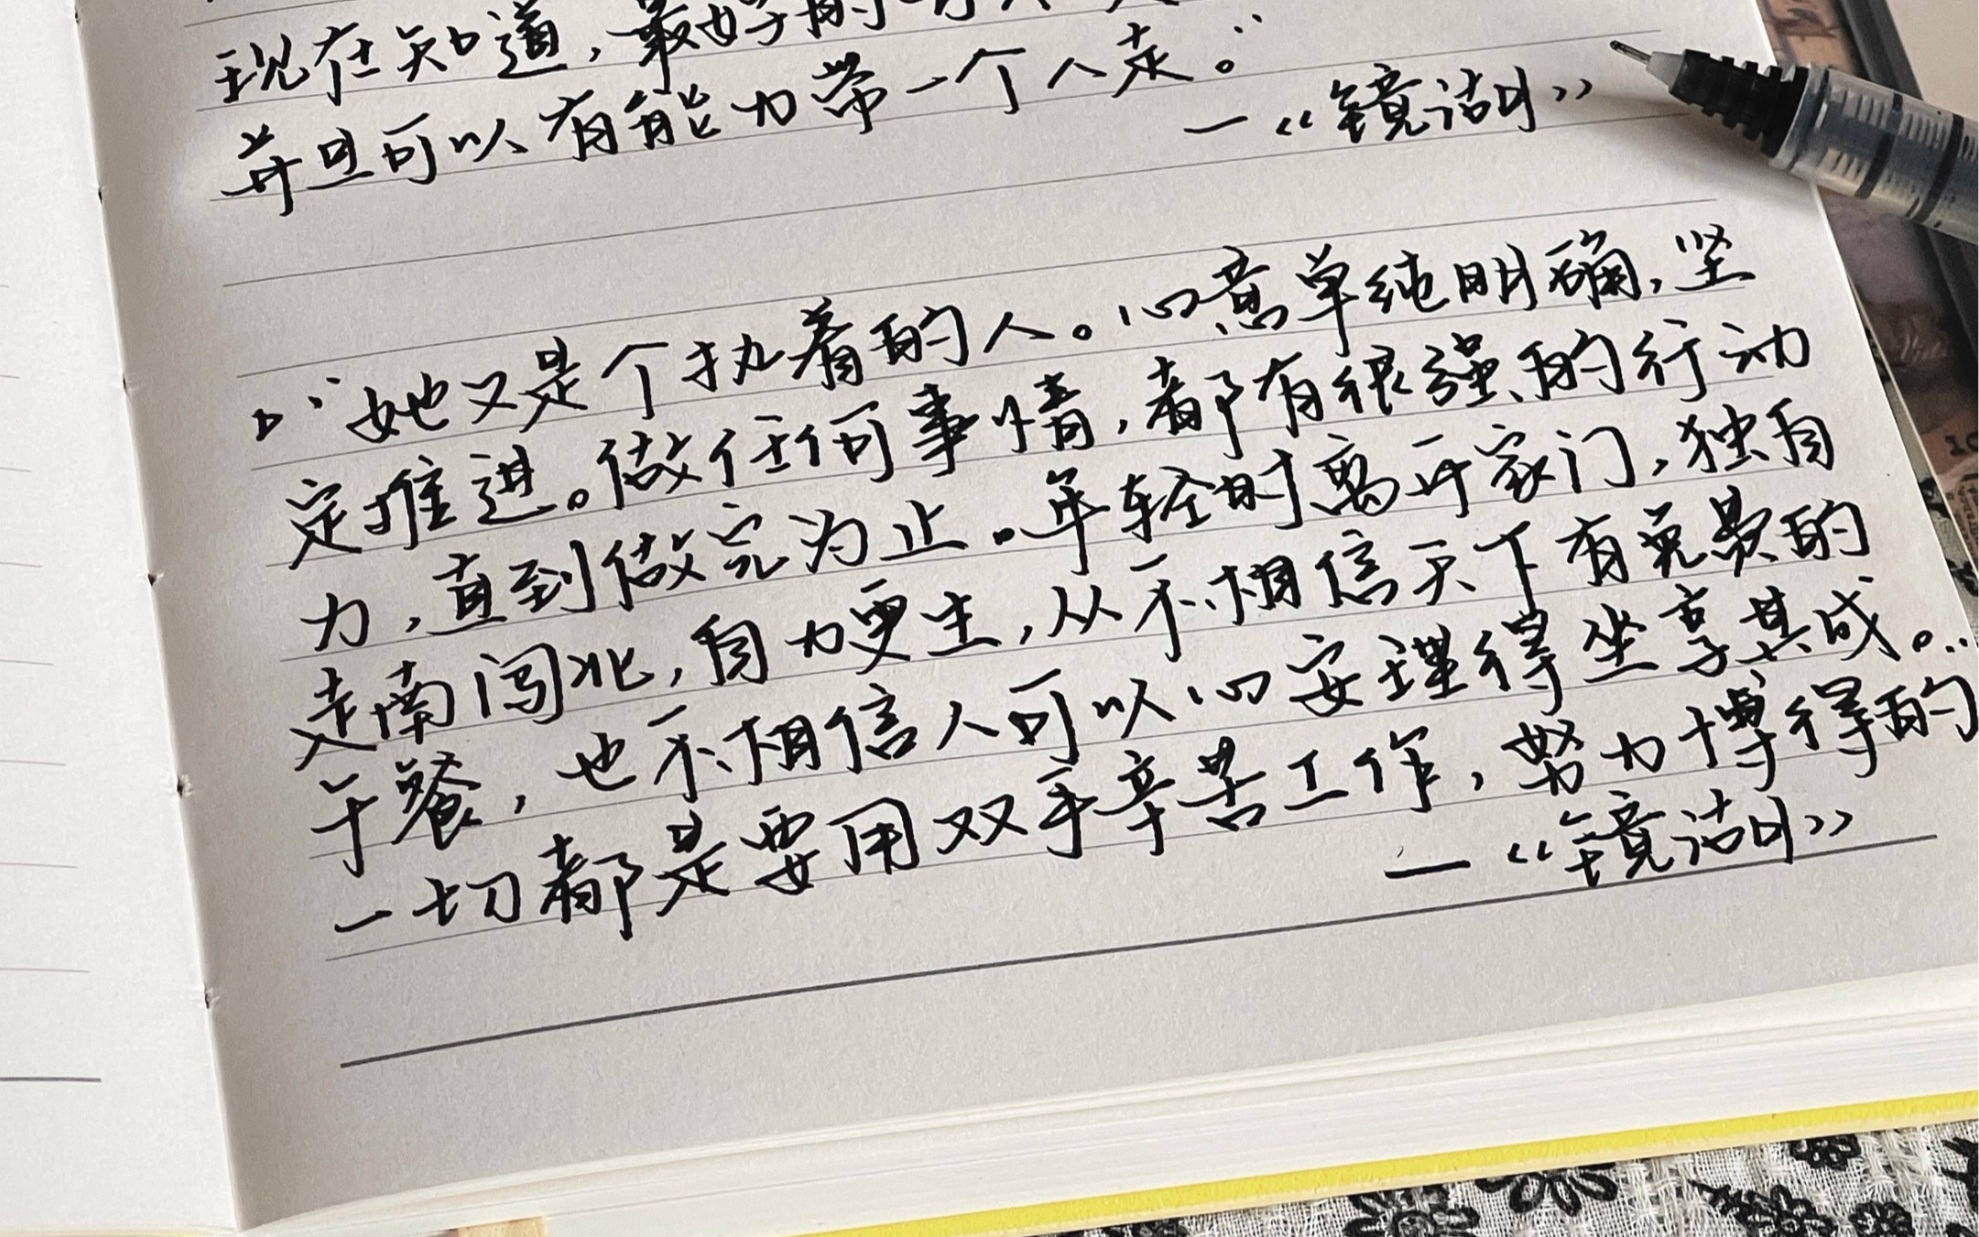 现在知道，最好的
并且可以有能力带一个人走。”
—《镜湖》
“她又是个执着的人。心意单纯明确，坚
定推进。做任何事情，都有很强的行动
力，直到做完为止。年轻时离开家门，独自
走南闯北，自力更生，从不相信天下有免费的
午餐，也不相信人可以心安理得坐享其成。…
一切都是要用双手辛苦工作，努力博得的
—《镜湖》